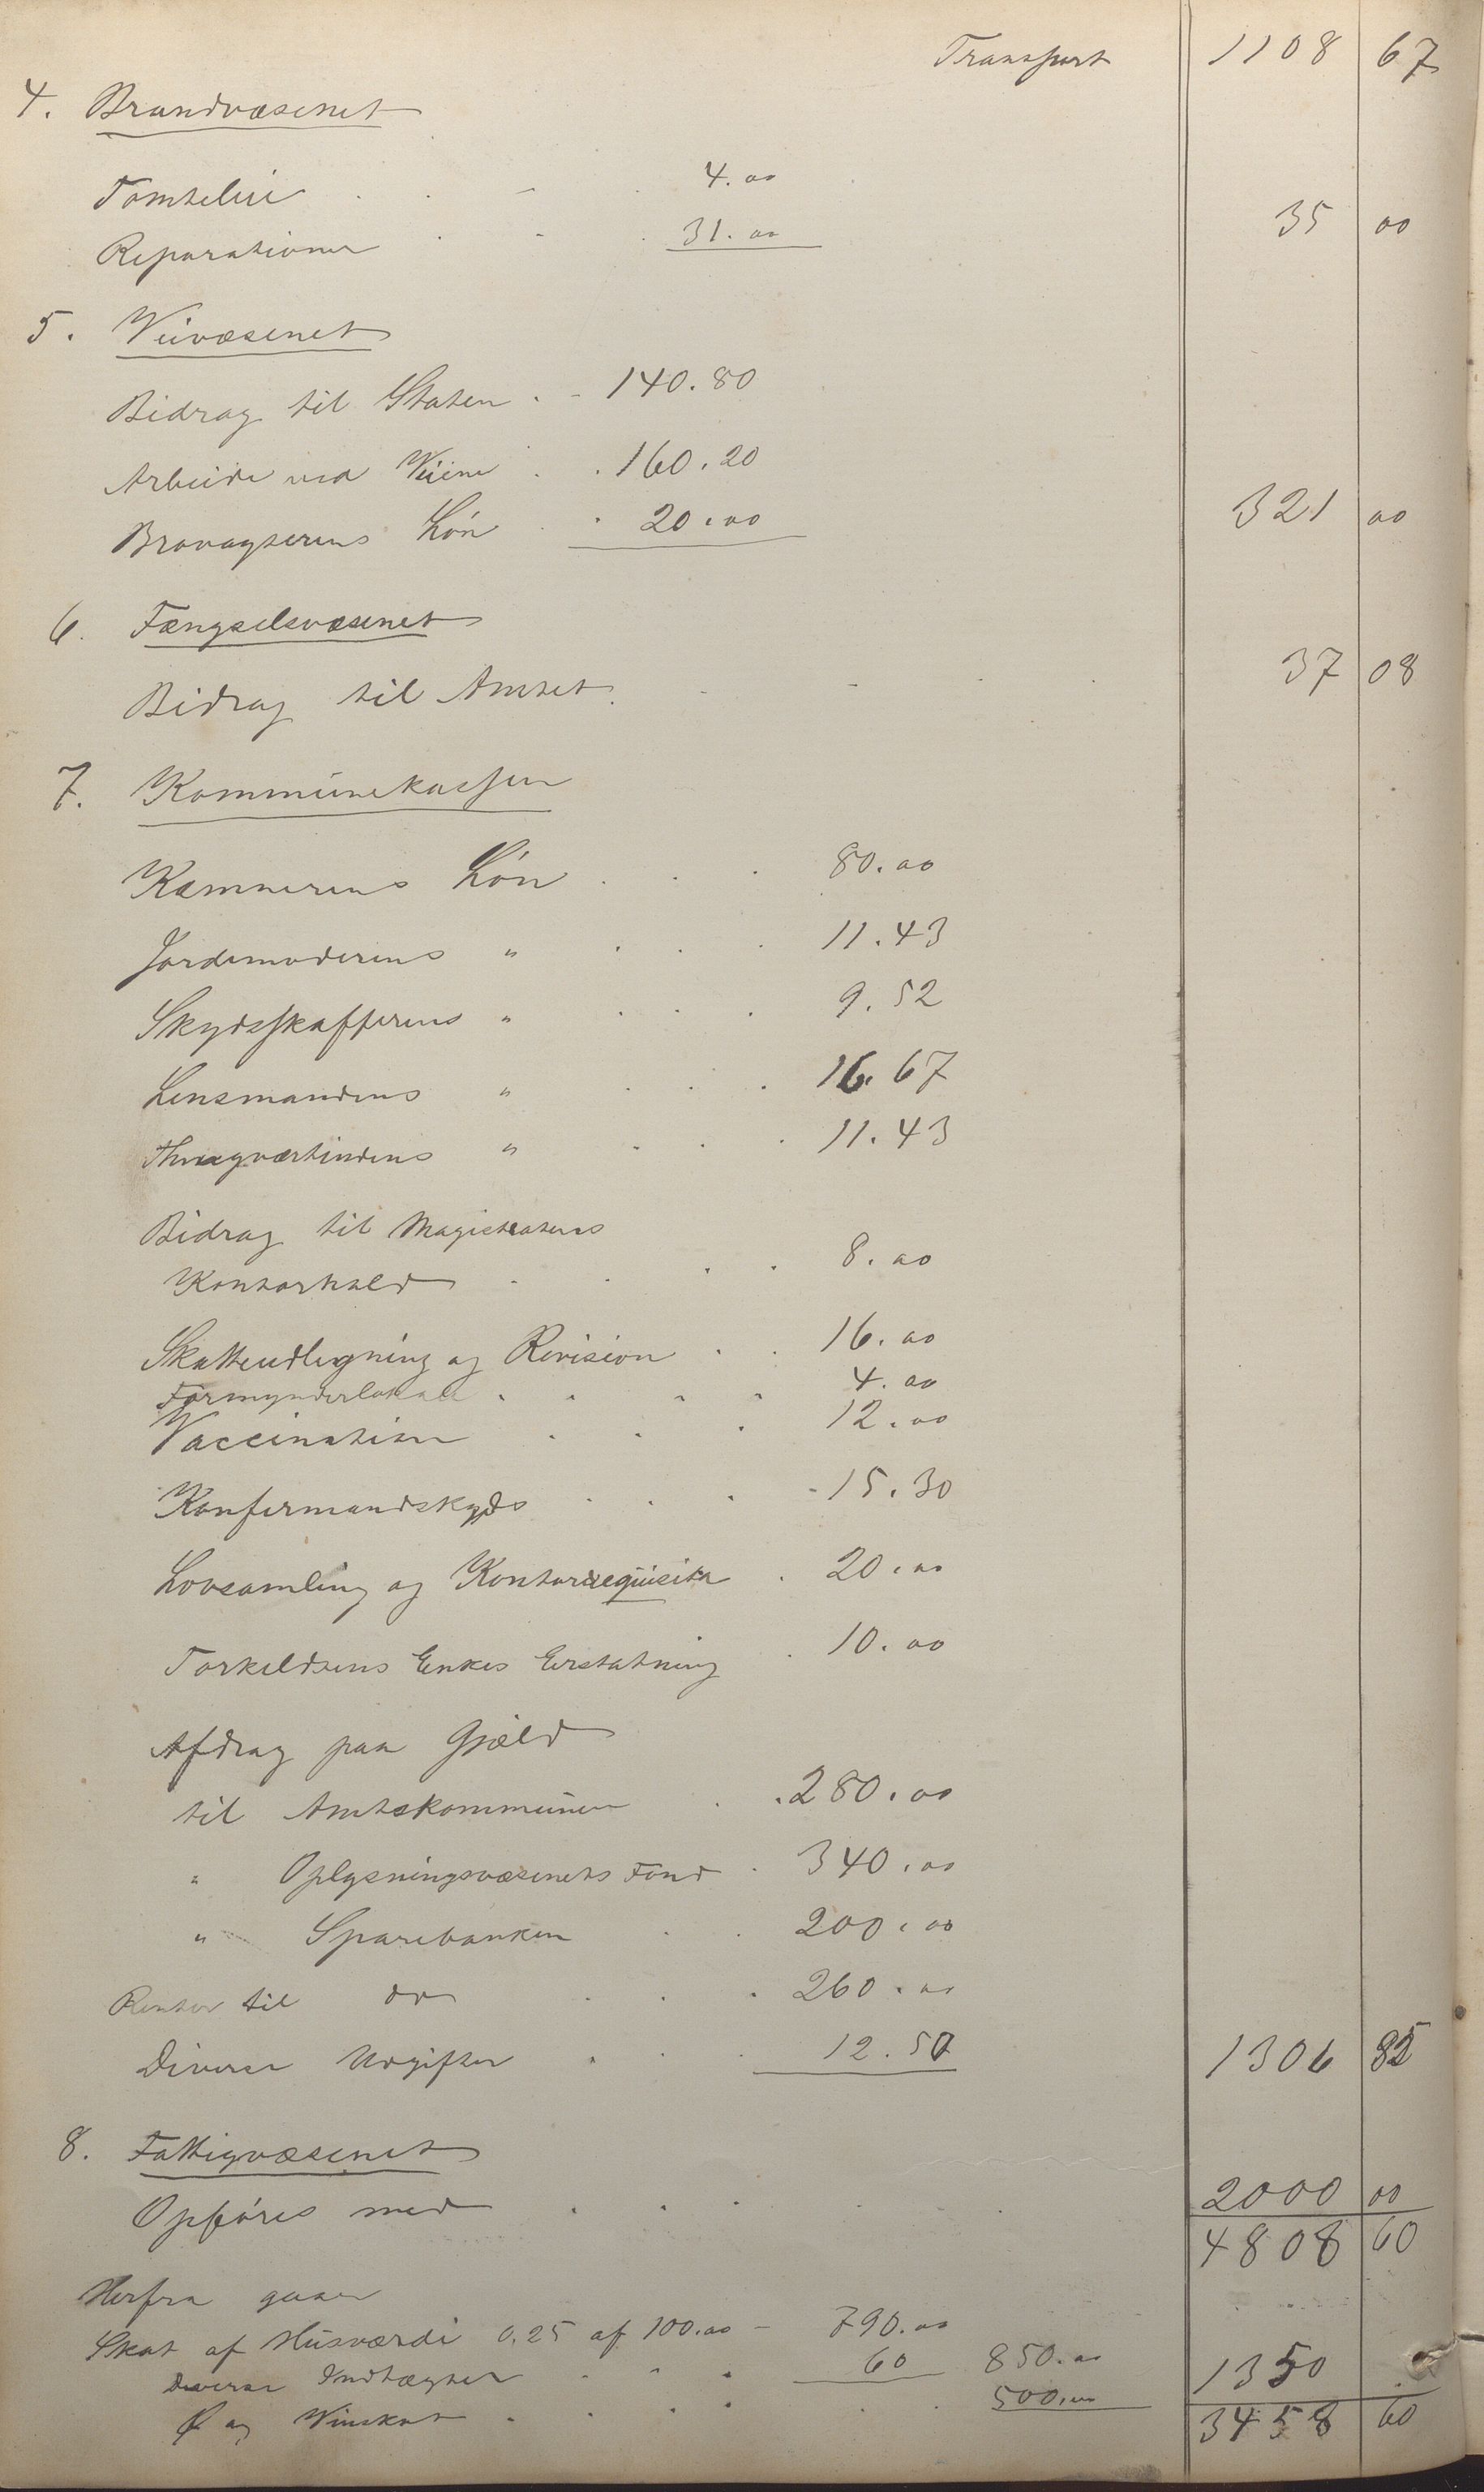 Transport 1108 67
4. Brandvæsenet
Tomteleie . . - . 4.00
Reparationer . - . 31.00 35 00
5. Veivæsenet
Bidrag til Staten . - 140.80
Arbeide ved Veiene . . 160.20
Brovagterens Løn . . 20.00 321 00
6. Fængselsvæsenet
Bidrag til Amtet . - - . - 37 08
7. Kommunekassen
Kæmnerens Løn . . . 80.00
Jordemoderens " . . . 11.43
Skydsskafferens " . . . 9.52
Lensmandens " . . . 16.67
Thingværtindens " . . . 11.43
Bidrag til Magistratens
Kontorhold . . . . 8.00
Skatteudligning og Revision . . 16.00
Formynderlokale . . . . 4.00
Vaccination . . . 12.00
Konfirmandskyds . . . - 15.30
Lovsamling og Kontorrequisita . 20.00
Torkeldsens Enkes Erstatning . 10.00
Afdrag paa Gjæld
til Amtskommunen . . 280.00
" Oplysningsvæsenets Fond . 340.00
" Sparebanken . . 200.00
Renter til do . . . 260.00
Diverse Udgifter . . . 12.50 1306 85
8. Fattigvæsenet
Opføres med . . . . . 2000 00
4808 60
Herfra gaaer
Skat af Husværdi 0.25 af 100.00 - 790.00
Diverse Indtægter . . . 60 850.00 1350 .
Øl og Vinskat . . . . . . 500.00 3458 60